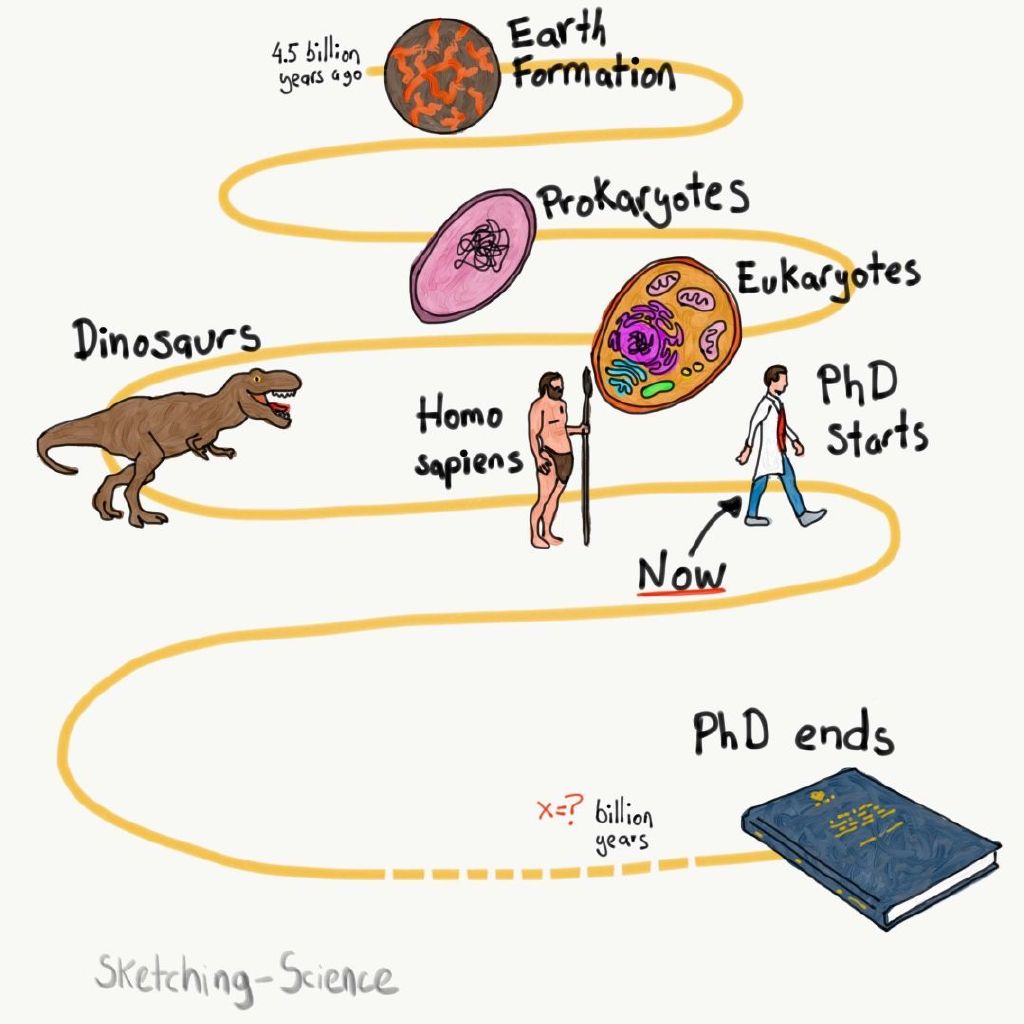 4.5 billion
years ago
Earth
Formation
Prokaryotes
Eukaryotes
Dinosaurs
Homo
sapiens
PhD
starts
Now
PhD ends
x=? billion
years
Sketching-Science